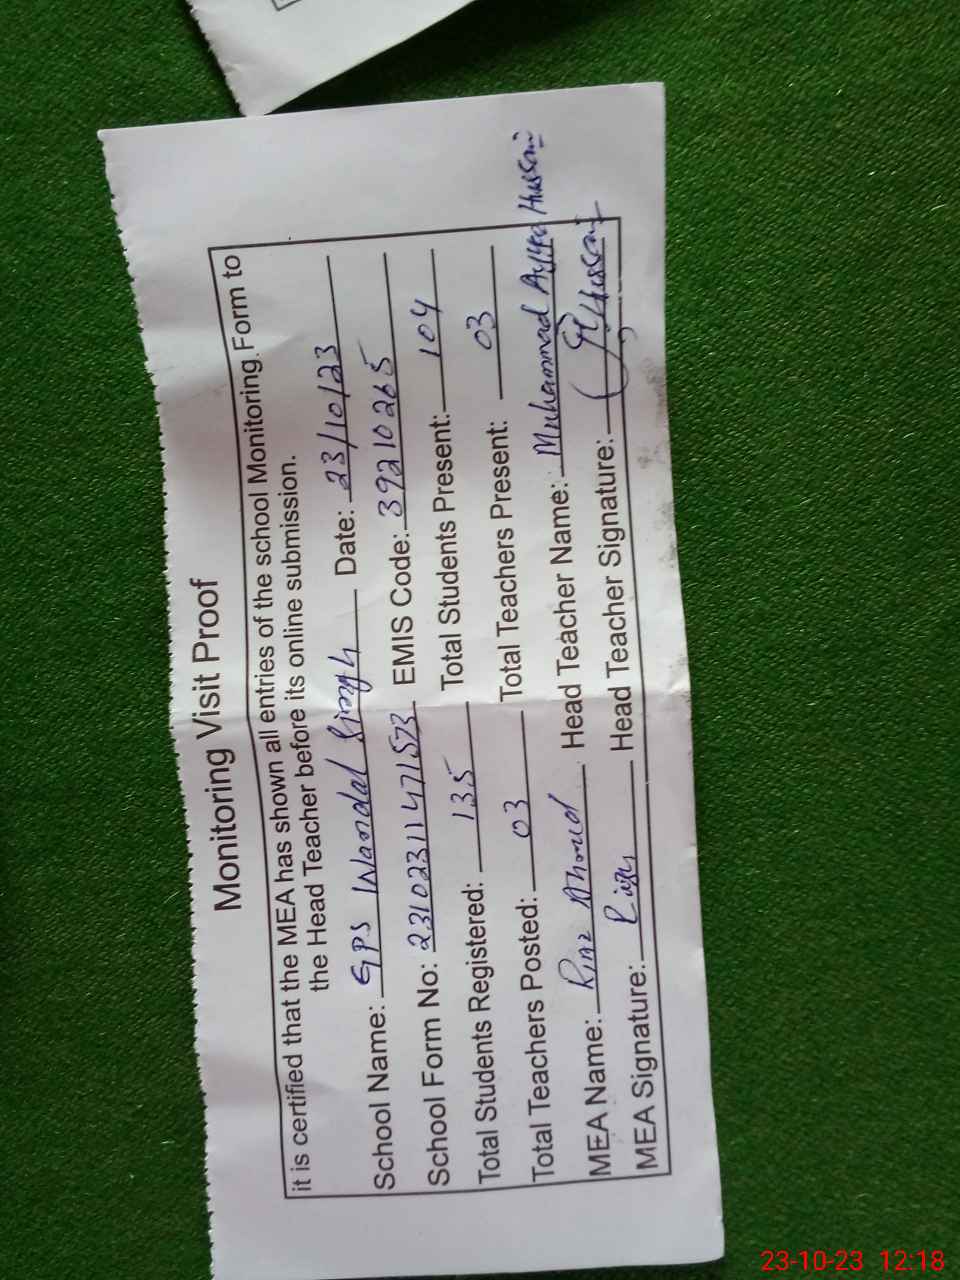 Monitoring Visit Proof
it is certified that the MEA has shown all entries of the school Monitoring Form to
the Head Teacher before its online submission.
School Name: GPS Wandal Date: 23/10/23
School Form No: 23102311471573 EMIS Code: 39210265
Total Students Registered: 135 Total Students Present: 104
Total Teachers Posted: 03 Total Teachers Present: 03
MEA Name: Riaz Ahmad Head Teacher Name: Muhammad Hussain
MEA Signature: Riaz Head Teacher Signature: Hussain
23-10-23 12:18